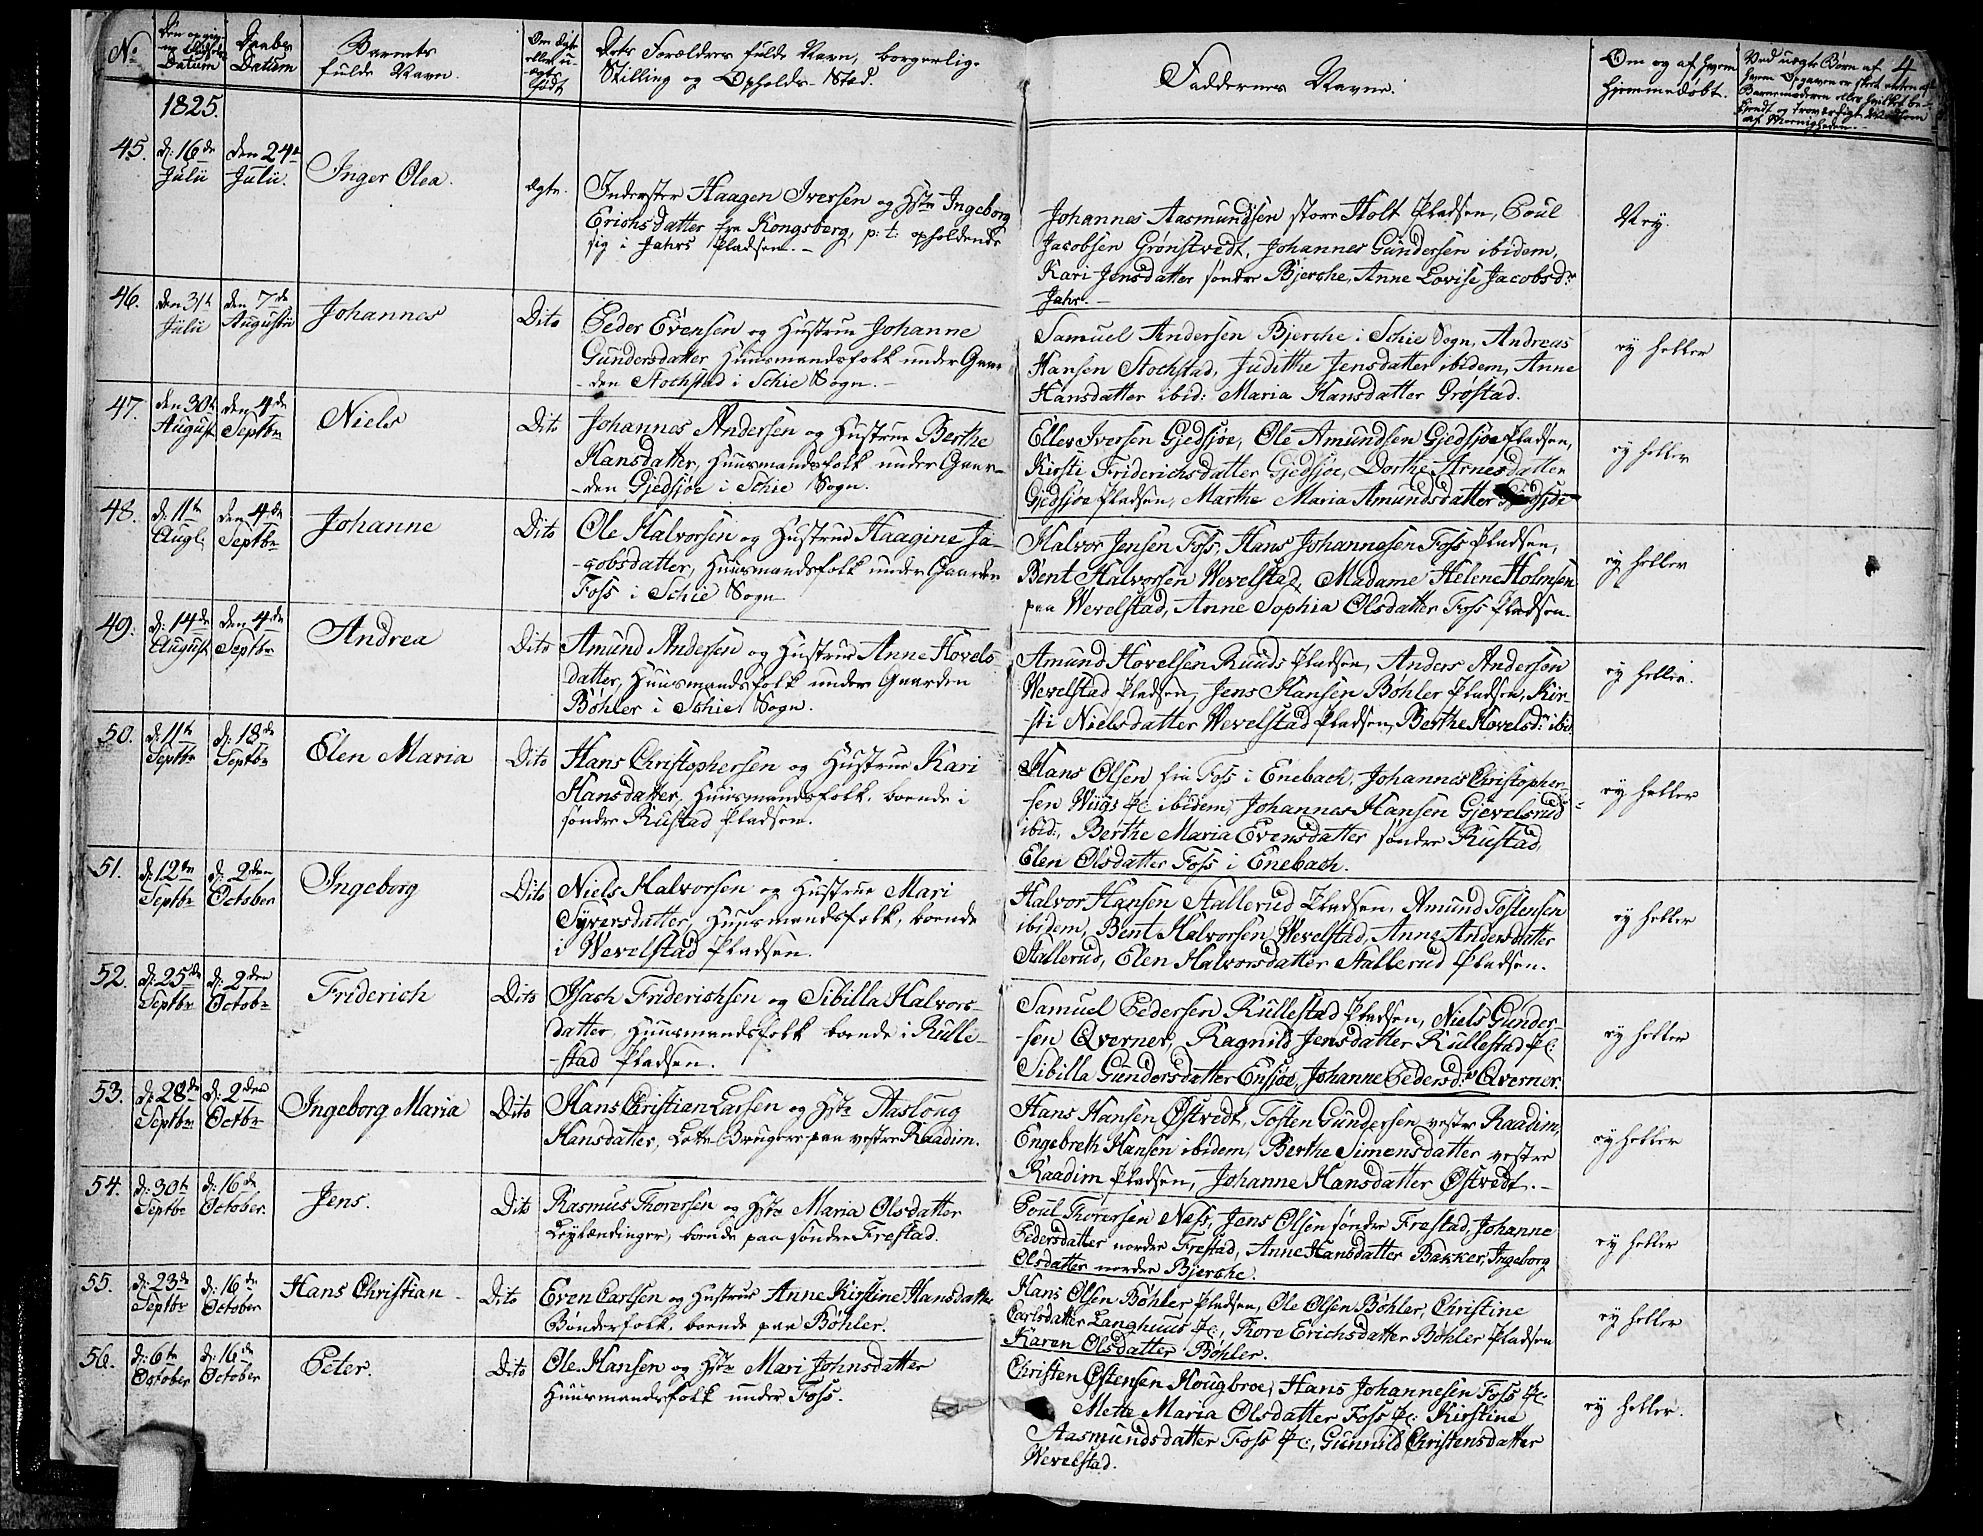 No
Datum
Daabs Datum
Barnets fulde Navn.
Om ægte eller u-ægte født
Dets Forældres fulde Navn, borgerlige
Stilling og Opholds-Sted.
Faddernes Navne.
Om og af hvem
hjemmedøbt.
4
Ved uægte Børn af
1825.
45.
d: 16de Julii
den 24de Julii.
Inger Olea.
ægte.
Inderster Haagen Iversen og Hstr Ingeborg
Erichsdatter fra Kongsberg, p: t: opholdende
sig i Jahrs Pladsen.-
Johannes Aasmundsen store Holt Pladsen, Poul
Jacobsen Grønstvedt, Johannes Gundersen ibidem,
Kari Jensdatter søndre Bjerche, Anne Lovise Jacobsdr
Jahr.-
Ney.
46.
den 31te Julii
den 7de Augusti
Johannes
Dito
Peder Evensen og Hustrue Johanne
Gundersdatter Huusmandsfolk under Gaar-
-den Stochstad i Schie Sogn.-
Samuel Andersen Bjerche i Schie Sogn, Andreas
Hansen Stochstad, Judithe Jensdatter ibidem, Anne
Hansdatter ibid: Maria Hansdatter Grøstad.
ey heller
47.
den 30te August
den 4de Septbr
Niels
Dito
Johannes Andersen og Hustrue Berthe
Hansdatter, Huusmandsfolk under Gaar-
-den Gjedsjøe i Schie Sogn.
Eller Iversen Gjedsjøe, Ole Amundsen Gjedsjøe Pladsen,
Kirsti Friderichsdatter Gjedsjøe, Dorthe Arnesdatter
Gjedsjøe Pladsen, Marthe Maria Amundsdatter Gjedsjøe
ey heller
48.
d: 11te Augl.
den 4de Septbr
Johanne
Dito
Ole Halvorsen og Hustrue Haagine Ja-
-cobsdatter, Huusmandsfolk under Gaarden
Foss i Schie Sogn
Halvor Jensen Foss, Hans Johannesen Foss Pladsen,
Bent Halvorsen Wevelstad, Madame Helene Holmsen
paa Wevelstad, Anne Sophia Olsdatter Foss Pladsen.
ey heller
49.
d: 14de August
den 4de Septbr
Andrea
Dito
Amund Andersen og Hustrue Anne Hovels-
datter, Huusmandsfolk under Gaarden
Bøhler i Schie Sogn.
Amund Hovelsen Ruuds Pladsen, Anders Andersen
Wevelstad Pladsen, Jens Hansen Bøhler Pladsen, Kir-
-sti Nielsdatter Wevelstad Pladsen, Berthe Hovelsdr ibid
ey heller.
50.
d: 11te Septbr
d: 18de Septbr
Elen Maria
Dito
Hans Christophersen og Hustrue Kari
Hansdatter, Huusmandsfolk, boende i
søndre Rustad Pladsen.
Hans Olsen fra Foss i Enebach, Johannes Christopher-
sen Wiigs Pl: ibidem, Johannes Hansen Gjevelsrud
ibid:, Berthe Maria Evensdatter søndre Rustad,
Elen Olsdatter Foss i Enebach.
ey heller
51.
d: 12te Septbr
d: 2den October
Ingeborg
Dito
Niels Halvorsen og Hustrue Mari
Syversdatter, Huusmandsfolk, boende
i Wevelstad Pladsen.
Halvor Hansen Stallerud Pladsen, Amund Tostensen
ibidem, Bent Halvorsen Wevelstad, Anne Andersdatter
Stallerud, Elen Halvorsdatter Stallerud Pladsen.
ey heller
52.
d: 25de Septbr
d: 2den Octobr
Friderich
Dito
Isach Friderichsen og Sibilla Halvors-
datter, Huusmandsfolk boende i Rulle-
-stad Pladsen.
Samuel Pedersen Rullestad Pladsen, Niels Gunder-
-sen Qverner, Ragnild Jensdatter Rullestad Pl:
Sibilla Gundersdatter Ensjøe, Johanne Pedersdr Qverner
ey heller
53.
d: 28de Septbr
d: 2den Octbr
Ingeborg Maria
Dito
Hans Christian Larsen og Hstr Aasloug
Hansdatter, Lotts Brugere paa vestre Raadim.
Hans Hansen Østvedt, Tosten Gundersen vestre Raadim,
Engebreth Hansen ibidem, Berthe Simensdatter vestre
Raadim Pladsen, Johanne Hansdatter Østvedt.-
ey heller
54.
d: 30te Septbr
d: 16de October.
Jens.
Dito
Rasmus Thorersen og Hstr Maria Olsdatter
Leylændinger, boende paa søndre Frestad.
Poul Thorersen Næss, Jens Olsen søndre Frestad, Johanne
Pedersdatter nordre Frestad, Anne Hansdatter Bakker, Ingeborg
Olsdatter nordre Bjerche.
ey heller
55.
d: 23de Septbr
d: 16de October
Hans Christian
Dito
Even Carlsen og Hustrue Anne Kirstine Hansdatter
Bonderfolk, boende paa Bøhler.
Hans Olsen Bøhler Pladsen, Ole Olsen Bøhler, Christine
Carlsdatter Langhuus Pl:, Thore Erichsdatter Bøhler Pladsen
Karen Olsdatter Bøhler.
ey heller
56.
d: 6te October
d: 16de October
Peter.
Dito
Ole Hansen og Hstr Mari Johnsdatter
Huusmandsfolk under Foss.
Christen Østensen Hougbroe, Hans Johannesen Foss Pl:
Mette Maria Olsdatter Foss Pl: Kirstine
Aasmundsdatter Foss Pl:, Gunnild Christensdatter
Wevelstad.
ey heller.